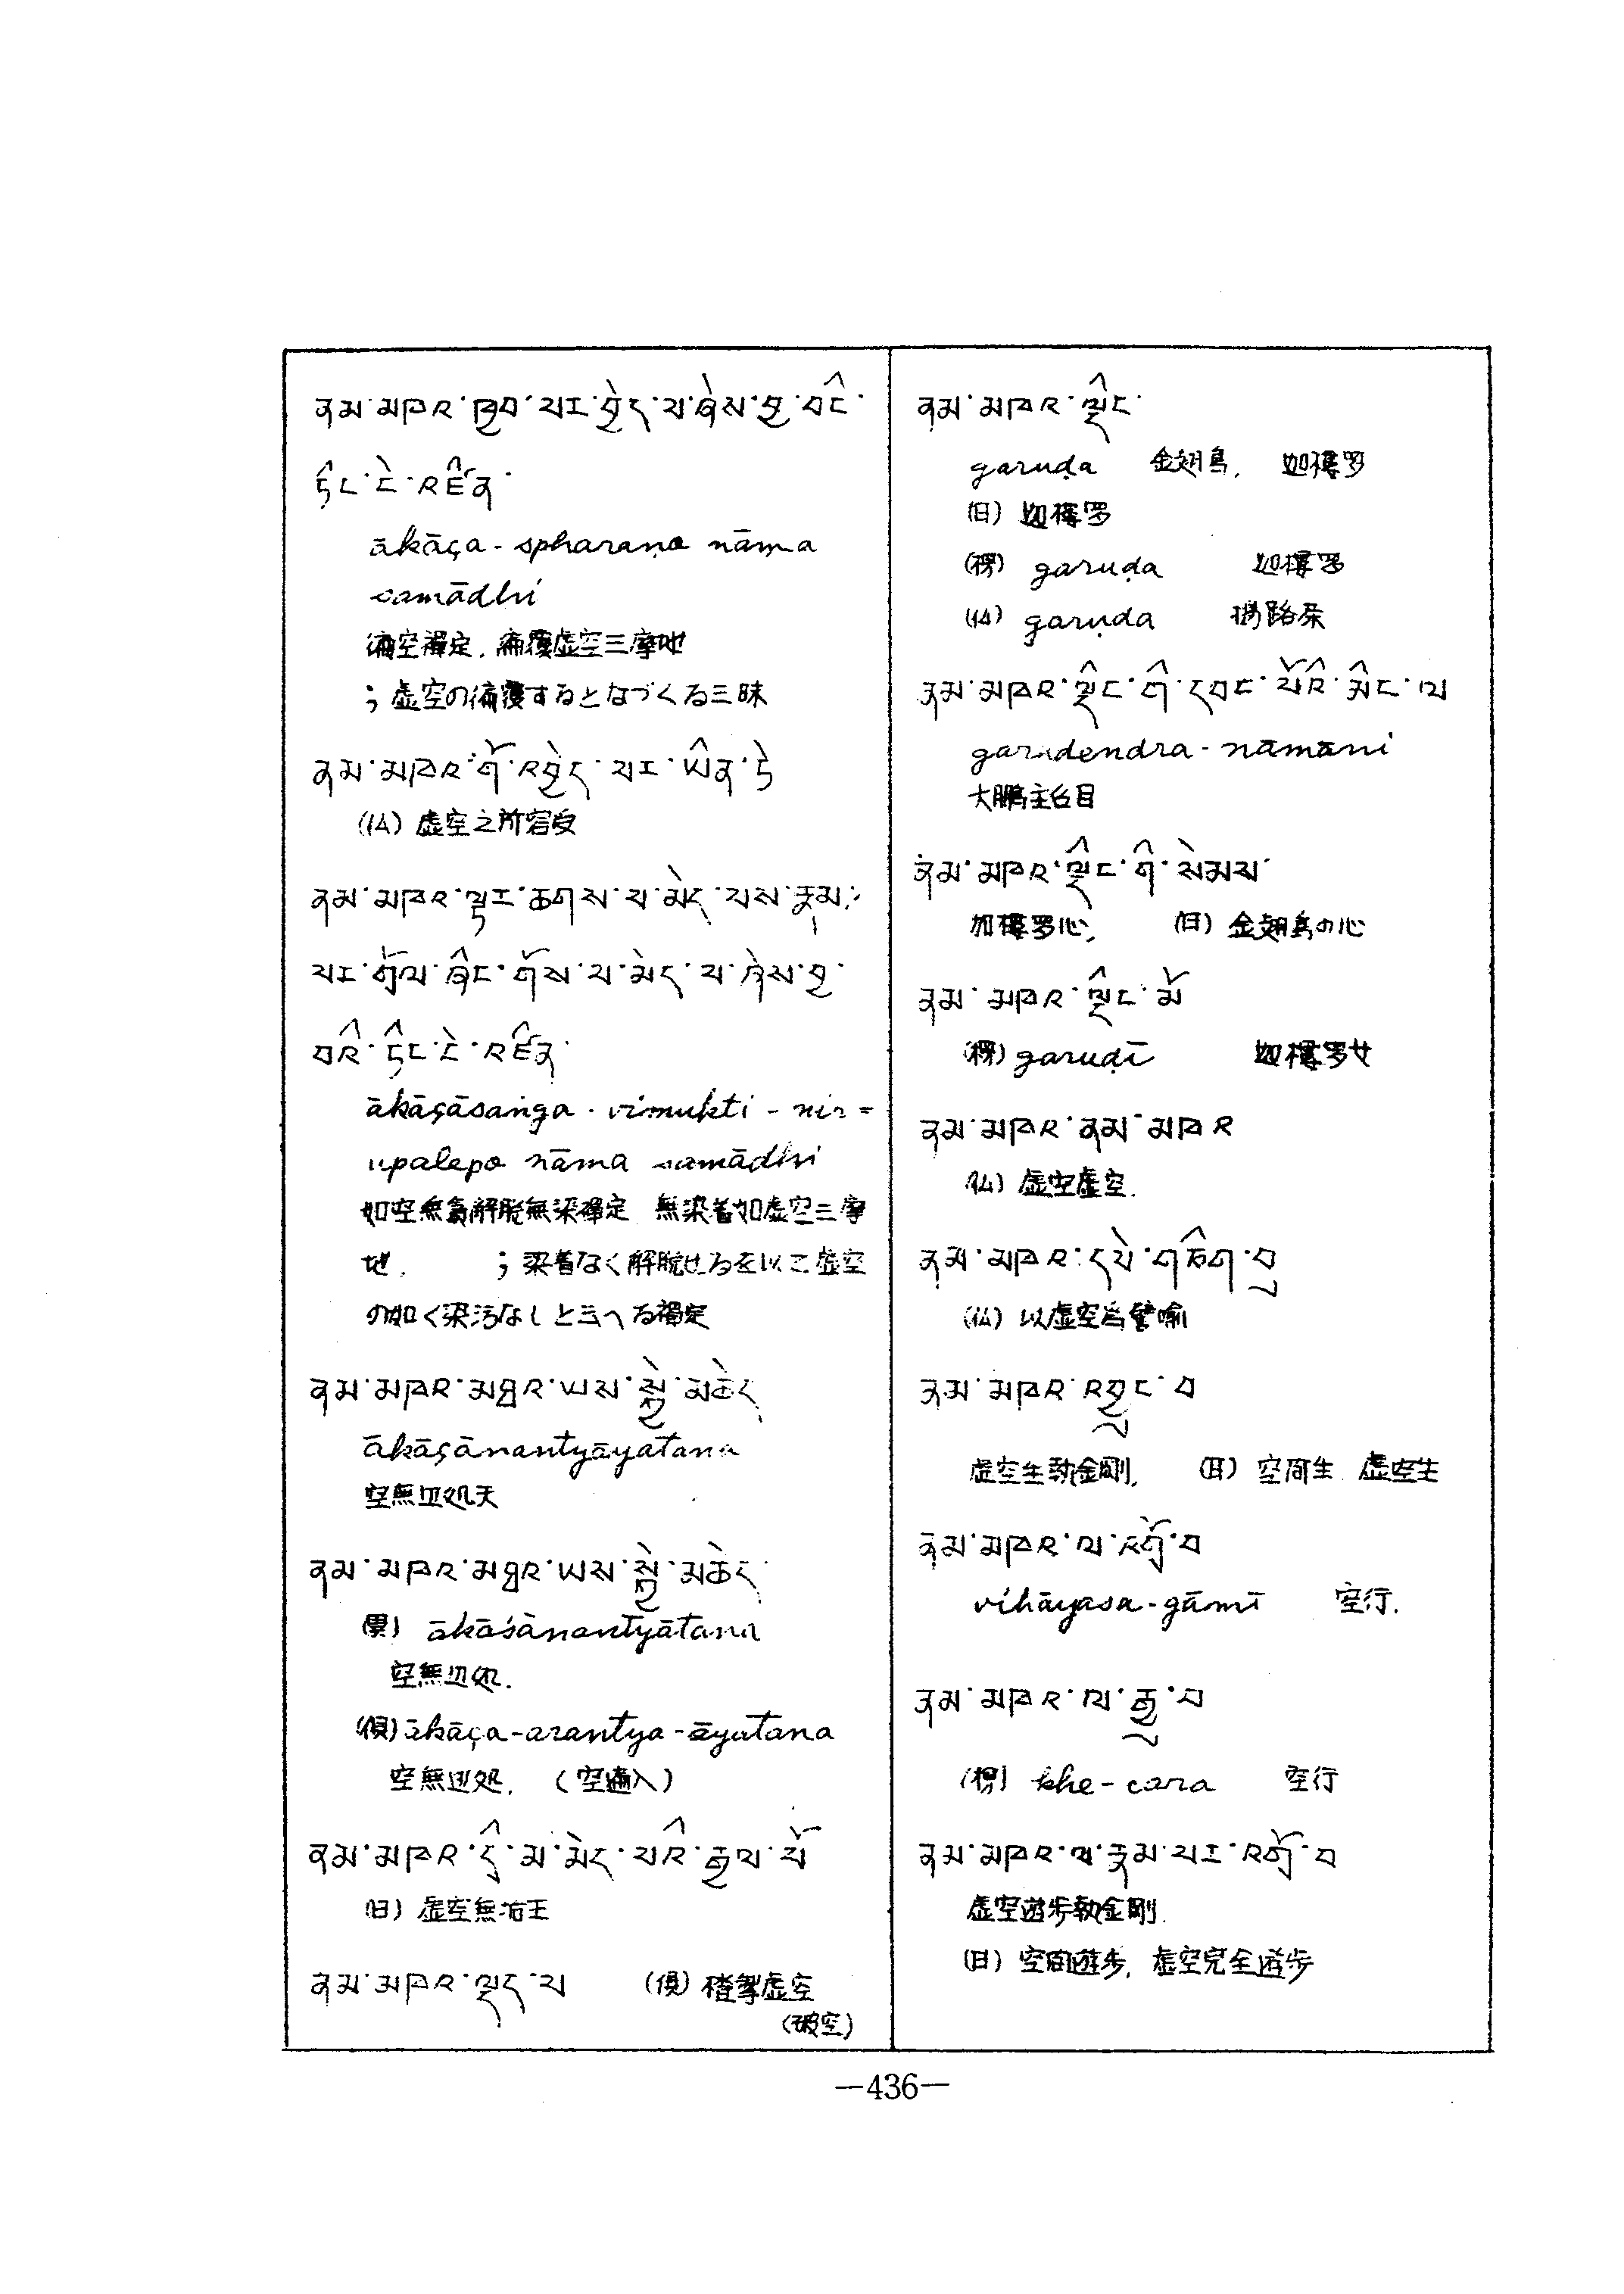 ནམ་མཁའ་ཁྱབ་པར་བྱེད་པ་ཞེས་བྱ་བའི་
ཏིང་ངེ་འཛིན་
ākāça-spharaṇa nāma
samādhi
遍空禪定. 遍覆虚空三摩地
; 虚空の遍覆するとなづくる三昧
ནམ་མཁའ་གོ་འབྱེད་པར་ཡིན་ཏེ
(仏) 虚空之所容受
ནམ་མཁའ་ལྟར་ཆགས་པ་མེད་པས་རྣམ་
པར་གྲོལ་ཞིང་གོས་པ་མེད་པ་ཞེས་བྱ་
བའི་ཏིང་ངེ་འཛིན་
ākāçāsaṅga-vimukti-nir=
upalepo nāma samādhi
如空無為解脱無染禪定 無染着如虚空三摩
地. ; 染着なく解脱せるを以て虚空
の如く染汚なしと云へる禪定
ནམ་མཁའ་མཐའ་ཡས་སྐྱེ་མཆེད
ākāçānantyāyatana
空無辺処天
ནམ་མཁའ་མཐའ་ཡས་སྐྱེ་མཆེད
ākāśānantyātana
空無辺処.
(倶) ākāça-anantya-āyatana
空無辺処. (空遍入)
ནམ་མཁའ་དྲི་མ་མེད་པའི་རྒྱལ་པོ
(日) 虚空無垢王
ནམ་མཁའ་ལྡད་པ (倶) 𫝆虚空
(破空)
ནམ་མཁའ་ལྡིང་
garuḍa 金翅鳥, 迦樓罗
(日) 迦樓罗
(楞) garuḍa 迦樓罗
(仏) garuḍa 掲路荼
ནམ་མཁའ་ལྡིང་གི་དབང་པོའི་མིང་ལ
garuḍendra-nāmāni
大鵬主名目
ནམ་མཁའ་ལྡིང་གི་སེམས་
加樓罗心, (日) 金翅鳥の心
ནམ་མཁའ་ལྡིང་མོ
(楞) garuḍī 迦樓罗女
ནམ་མཁའ་ནམ་མཁའ
(仏) 虚空虚空.
ནམ་མཁའ་དཔེ་གཅིག་བུ
(仏) 以虚空爲譬喻
ནམ་མཁའ་འབྱུང་བ
虚空生執金剛, (日) 空間生 虚空生
ནམ་མཁའ་ལ་འགྲོ་བ
vihāyasa-gāmī 空行.
ནམ་མཁའ་ལ་རྒྱུ་བ
(楞) khe-cara 空行
ནམ་མཁའ་ལ་རྣམ་པར་འགྲོ་བ
虚空遊歩執金剛.
(日) 空間遊歩, 虚空完全遊歩
—436—